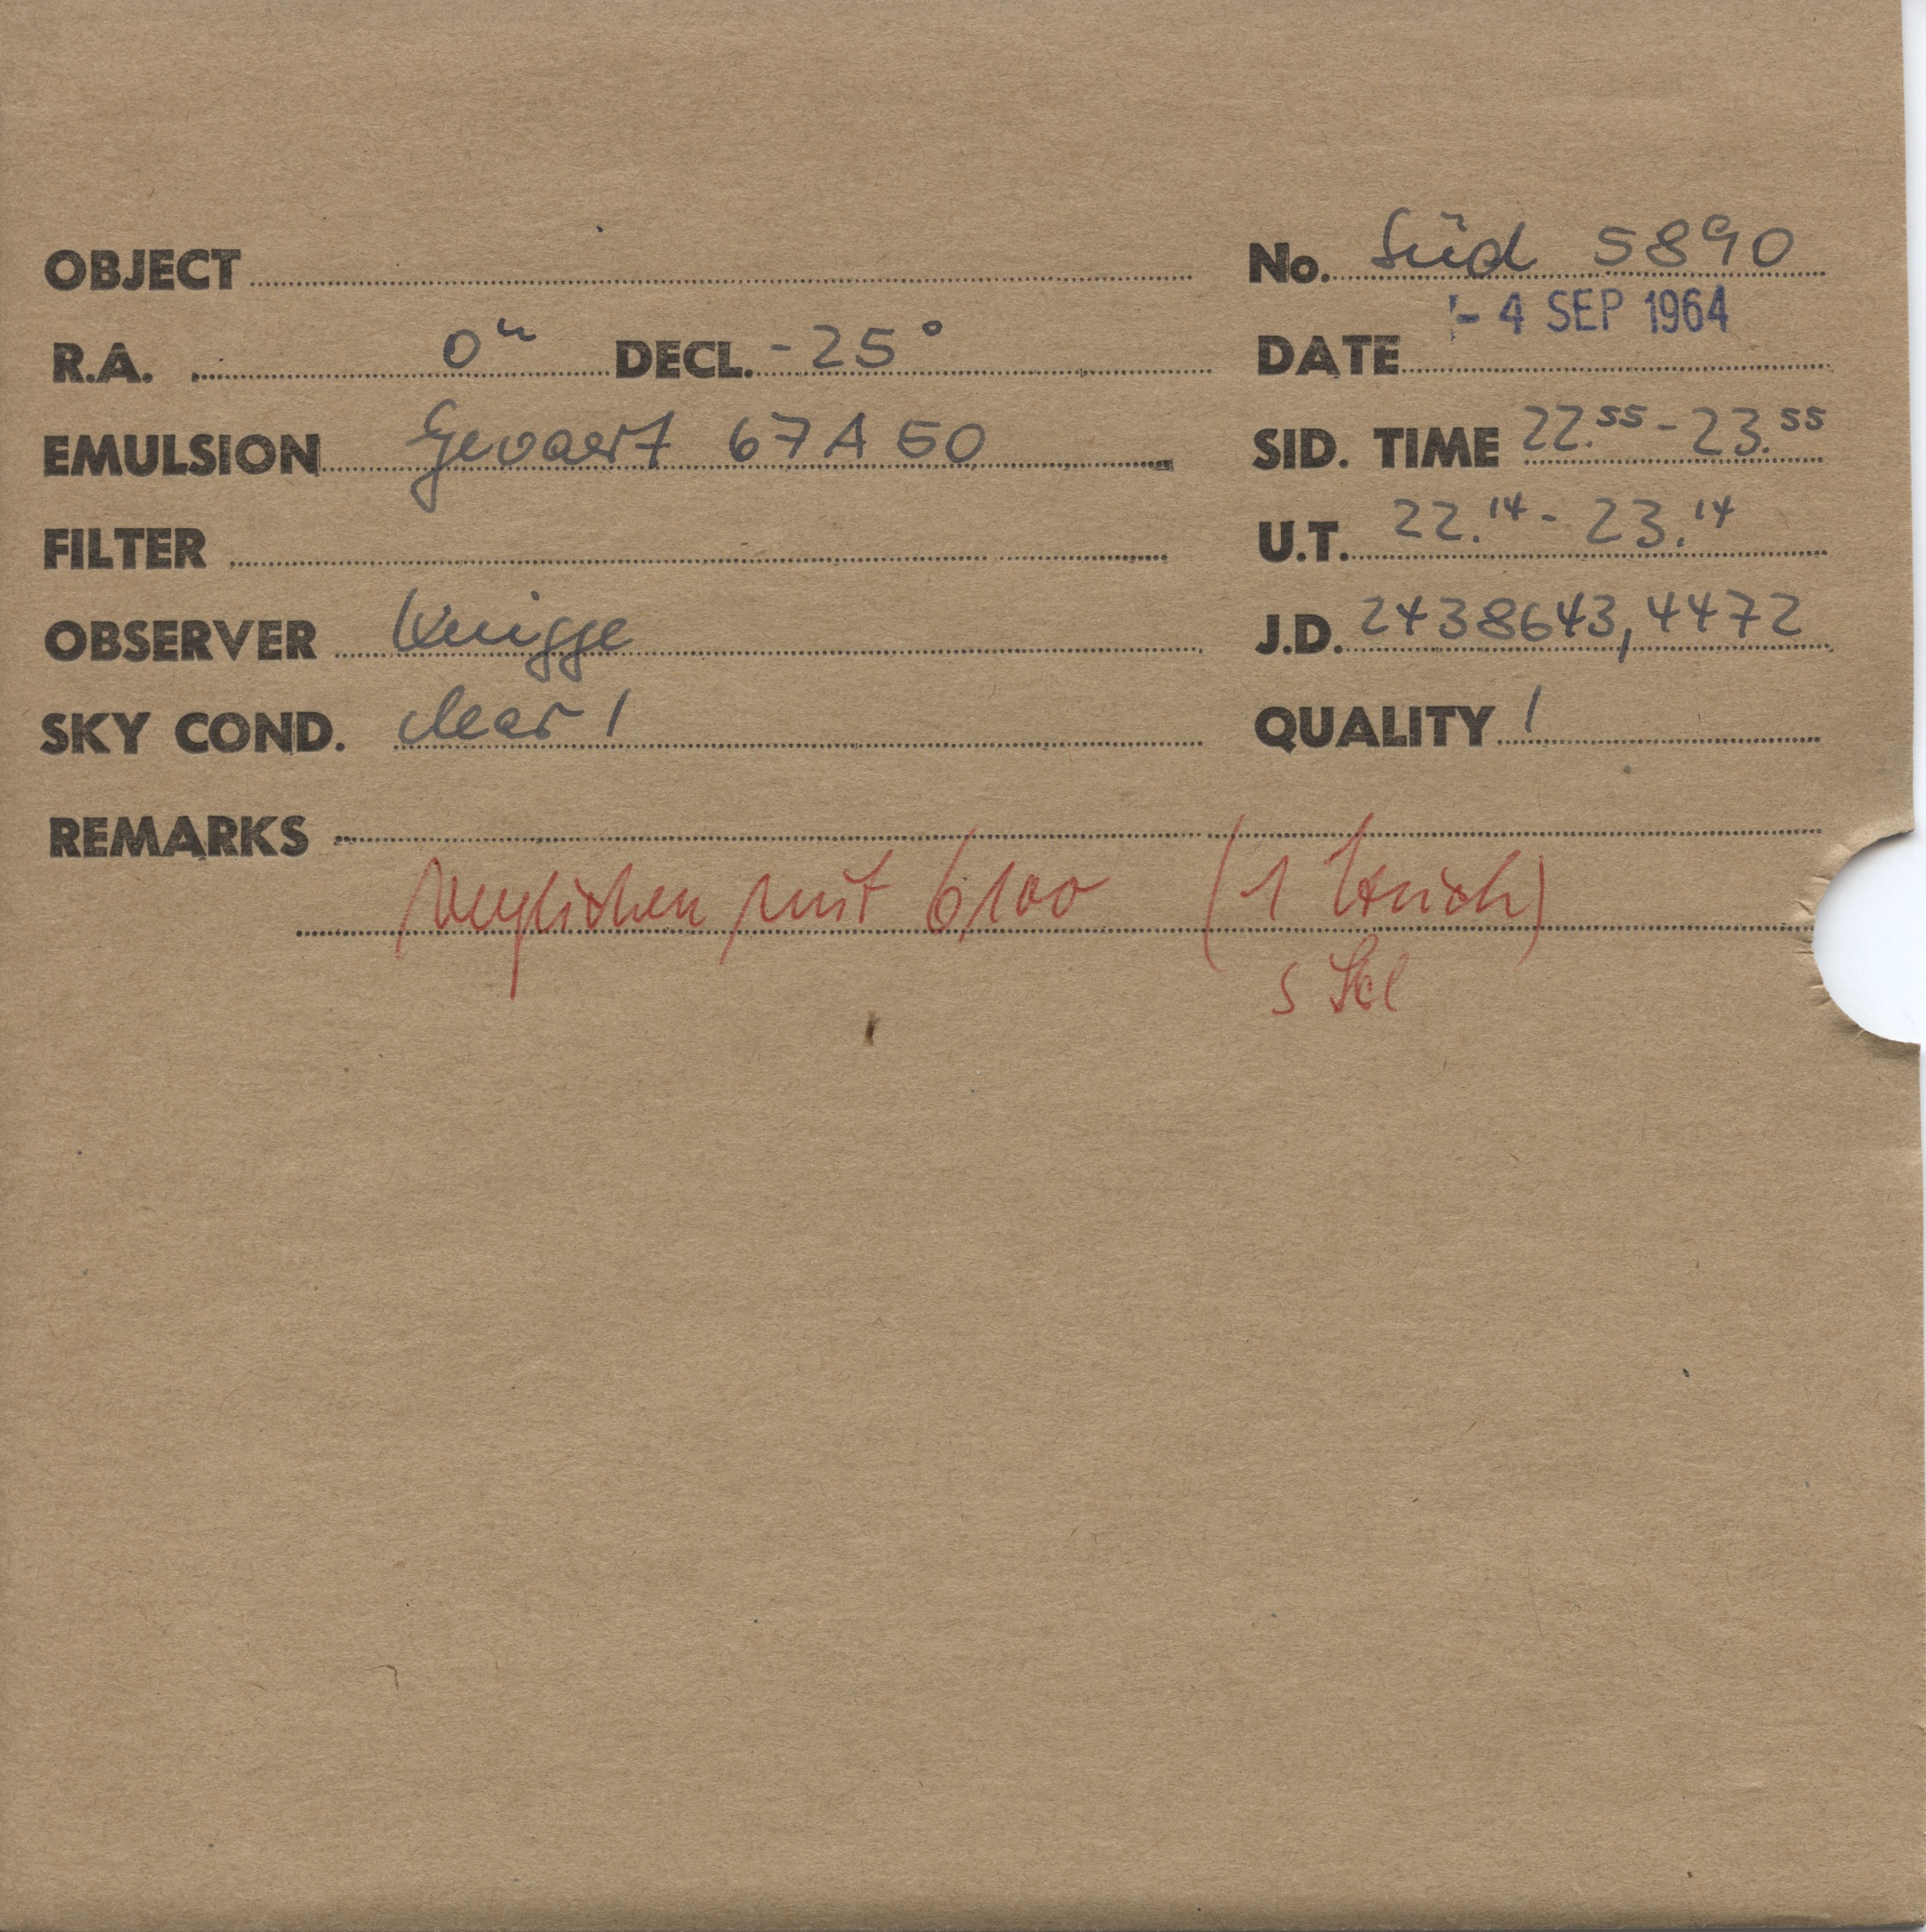 OBJECT No. Süd 5890
R.A. 0ʰ DECL. -25° DATE - 4 SEP 1964
EMULSION Gevaert 67A50 SID. TIME 22.55-23.55
FILTER U.T. 22.14-23.14
OBSERVER Knigge J.D. 2438643,4472
SKY COND. clear 1 QUALITY 1
REMARKS
verglichen mit 6100 (1 Strich)
S Scl